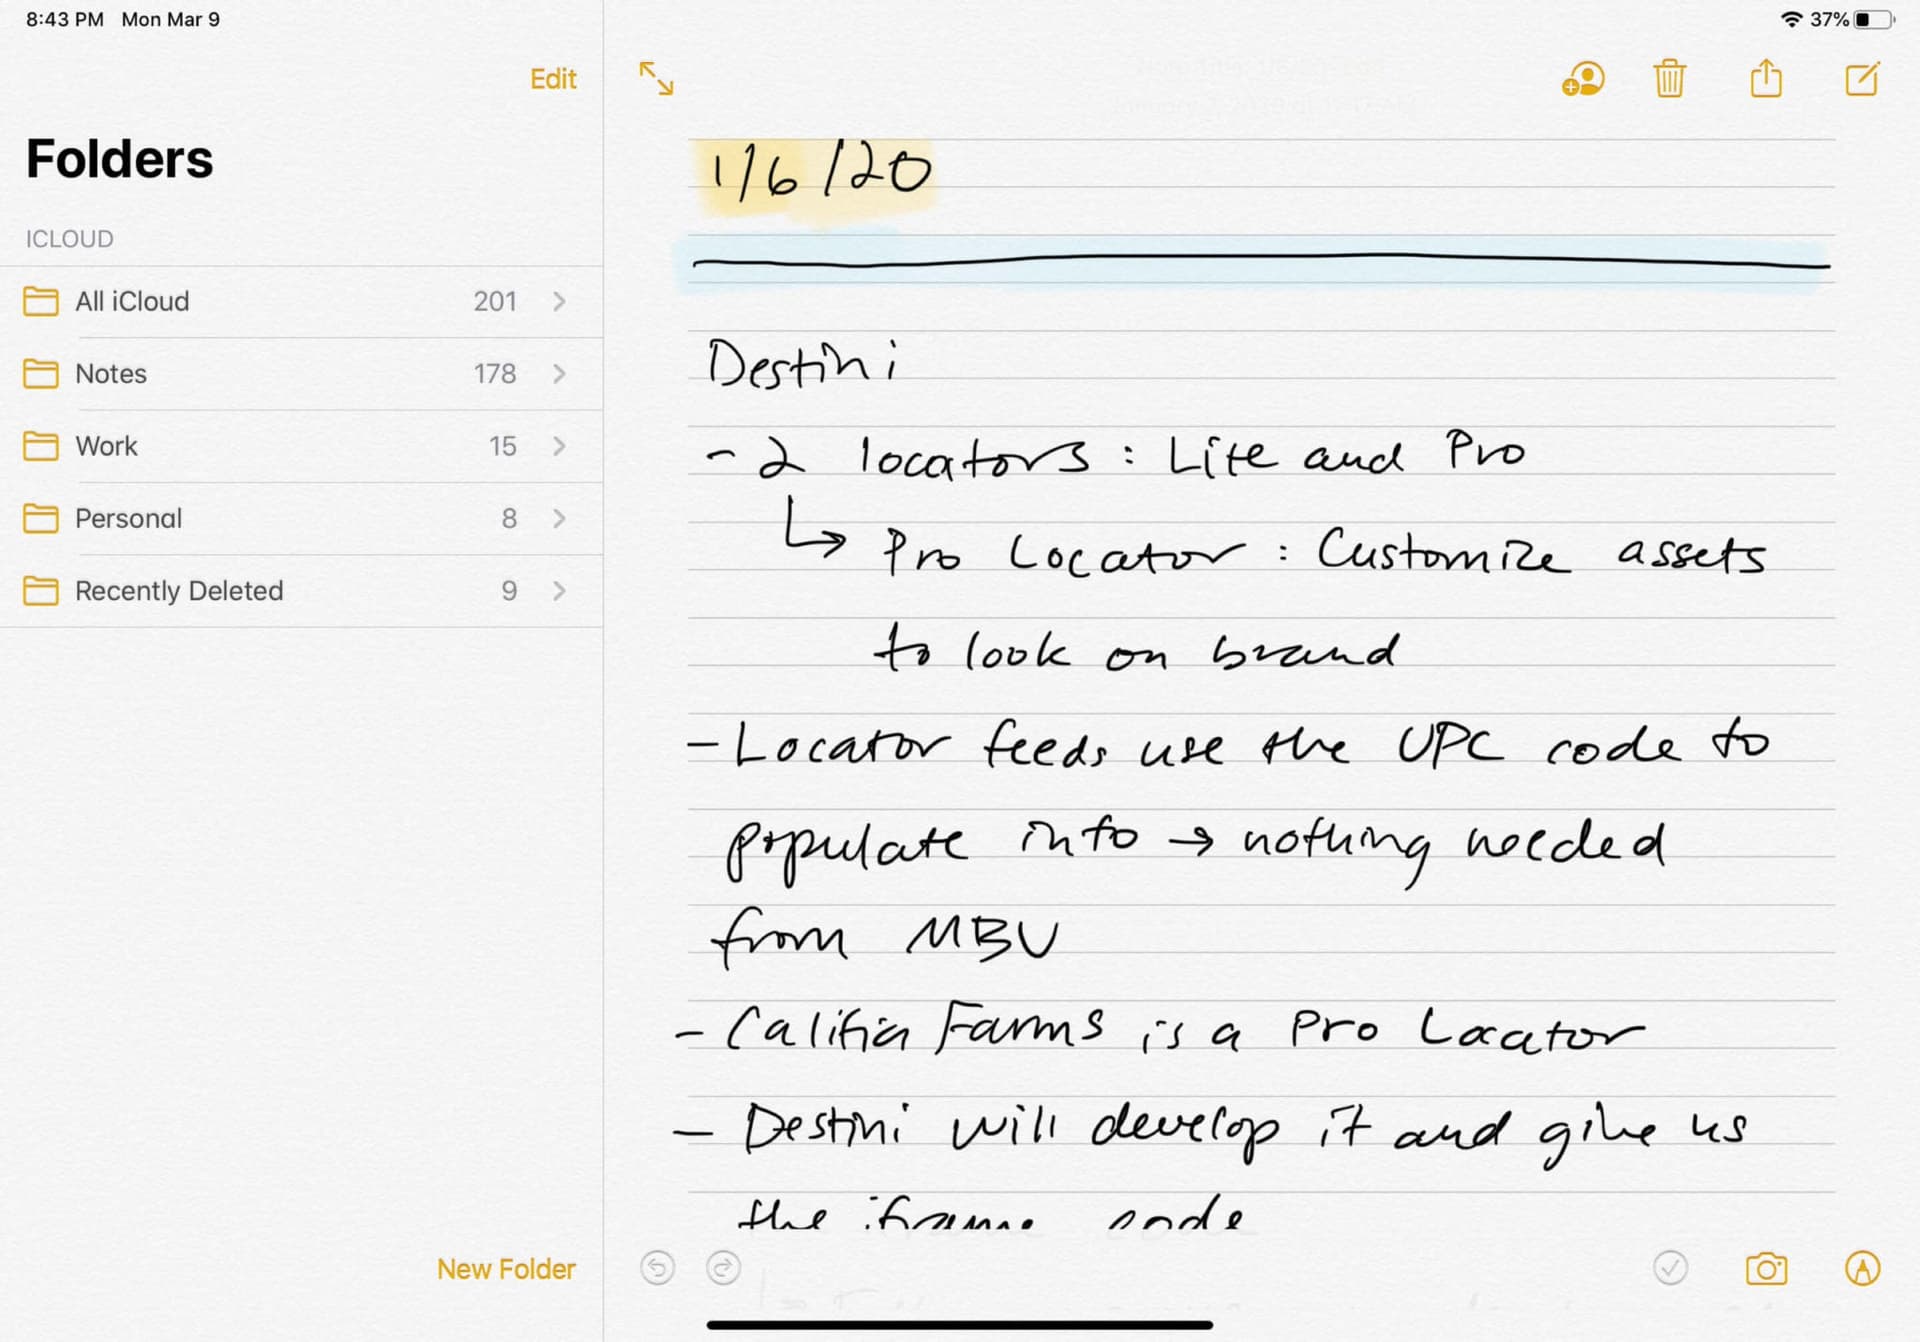 8:43 PM Mon Mar 9
37%
Edit
Folders
ICLOUD
All iCloud 201
Notes 178
Work 15
Personal 8
Recently Deleted 9
New Folder
1/6/20
Destini
- 2 locators: Lite and Pro
↳ Pro Locator: Customize assets
to look on brand
- Locator feeds use the UPC code to
populate info → nothing needed
from MBU
- Califia Farms is a Pro Locator
- Destini will develop it and give us
the iframe code